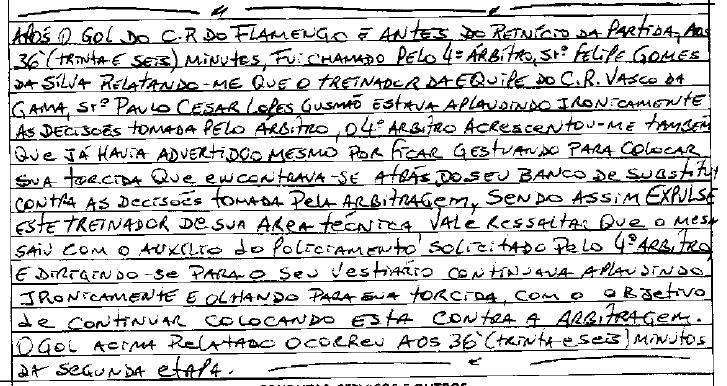 APÓS O GOL DO C.R DO FLAMENGO E ANTES DO REINÍCIO DA PARTIDA, AOS
36' (TRINTA E SEIS) MINUTOS, FUI CHAMADO PELO 4º ÁRBITRO, Srº FELIPE GOMES
DA SILVA RELATANDO-ME QUE O TREINADOR DA EQUIPE DO C.R. VASCO DA
GAMA, Srº PAULO CESAR LOPES GUSMÃO ESTAVA APLAUDINDO IRONICAMENTE
AS DECISÕES TOMADA PELO ÁRBITRO, O 4º ARBITRO ACRESCENTOU-ME TAMBÉM
QUE JÁ HAVIA ADVERTIDO O MESMO POR FICAR GESTUANDO PARA COLOCAR
SUA TORCIDA QUE ENCONTRAVA-SE ATRÁS DO SEU BANCO DE SUBSTITU
CONTRA AS DECISÕES TOMADA PELA ARBITRAGEM, SENDO ASSIM EXPULSE
ESTE TREINADOR DE SUA AREA TÉCNICA, VALE RESSALTAR QUE O MES
SAIU COM O AUXÍLIO do POLICIAMENTO SOLICITADO PELO 4º ARBITRO,
E DIRIGINDO-SE PARA O SEU VESTIÁRIO CONTINUAVA APLAUDINDO
IRONICAMENTE E OLHANDO PARA SUA TORCIDA, COM O OBJETIVO
de CONTINUAR COLOCANDO ESTA CONTRA A ARBITRAGEM.
O GOL ACIMA RELATADO OCORREU AOS 36' (TRINTA e SEIS) MINUTOS
DA SEGUNDA ETAPA.